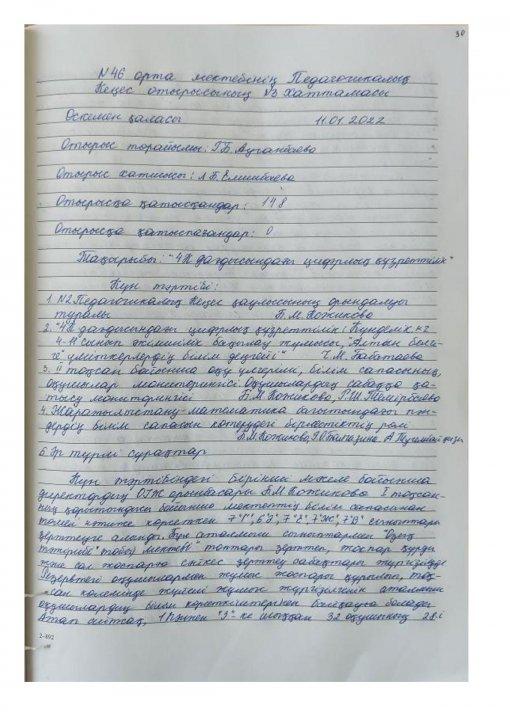 30
N46 орта мектебінің Педагогикалық
Кеңес отырысының №3 Хаттамасы
Өскемен қаласы 11.01.2022
Отырыс төрайымы: Г.Б.Ауганбаева
Отырыс хатшысы: Л.Б.Ешимбаева
Отырысқа қатысқандар: 148
Отырысқа қатыспағандар: 0
Тақырыбы: "4К дағдысындағы цифрлық құзреттілік"
Күн тәртібі:
1. N2 Педагогикалық Кеңес қаулысының орындалуы
туралы Б.М.Кожикова
2. "4К дағдысындағы цифрлық құзреттілік: Күнделік
4-11 сынып әкімшілік бақылау жұмысы, "Алтын белгі-
ге" үміткерлердің білім деңгейі" Г.М.Бабатаева
3. II тоқсан бойынша оқу үлгерімі, білім сапасының,
оқушылар мониторингісі. Оқушылардың сабаққа қа-
тысу мониторингісі Б.М.Кожикова, Р.Ш.Темірбаева
4. Жаратылыстану-математика бағытындағы пән-
дердің білім сапасын көтерудегі бірлестіктің рөлі
Б.М.Кожикова,
Әр түрлі сұрақтар
Күн тәртібіндегі бірінші мәселе бойынша
директордың ОТЖ орынбасары Б.М.Кожикова I тоқсан-
ның қорытындысы бойынша мектептің білім сапасынан
төмен нәтиже көрсеткен сыныптары
зерттеуге алынды. Бұл аталмыш сыныптармен "Өзен
тәжірибе" тобы мектебі топтары зерттеп, жоспар құрды
және сол жоспарға сәйкес зерттеу сабақтары жүргізілуде
Резервтегі оқушылармен жұмыс жоспары құрылып, тоқ-
сан көлемінде жүйелі жұмыс жүргізілгенін аталмыш
оқушылардың білім көрсеткіштерінен байқауға болады.
Атап айтсақ, 1 пәннен "3"-ке шыққан 32 оқушының 28-і
2-892